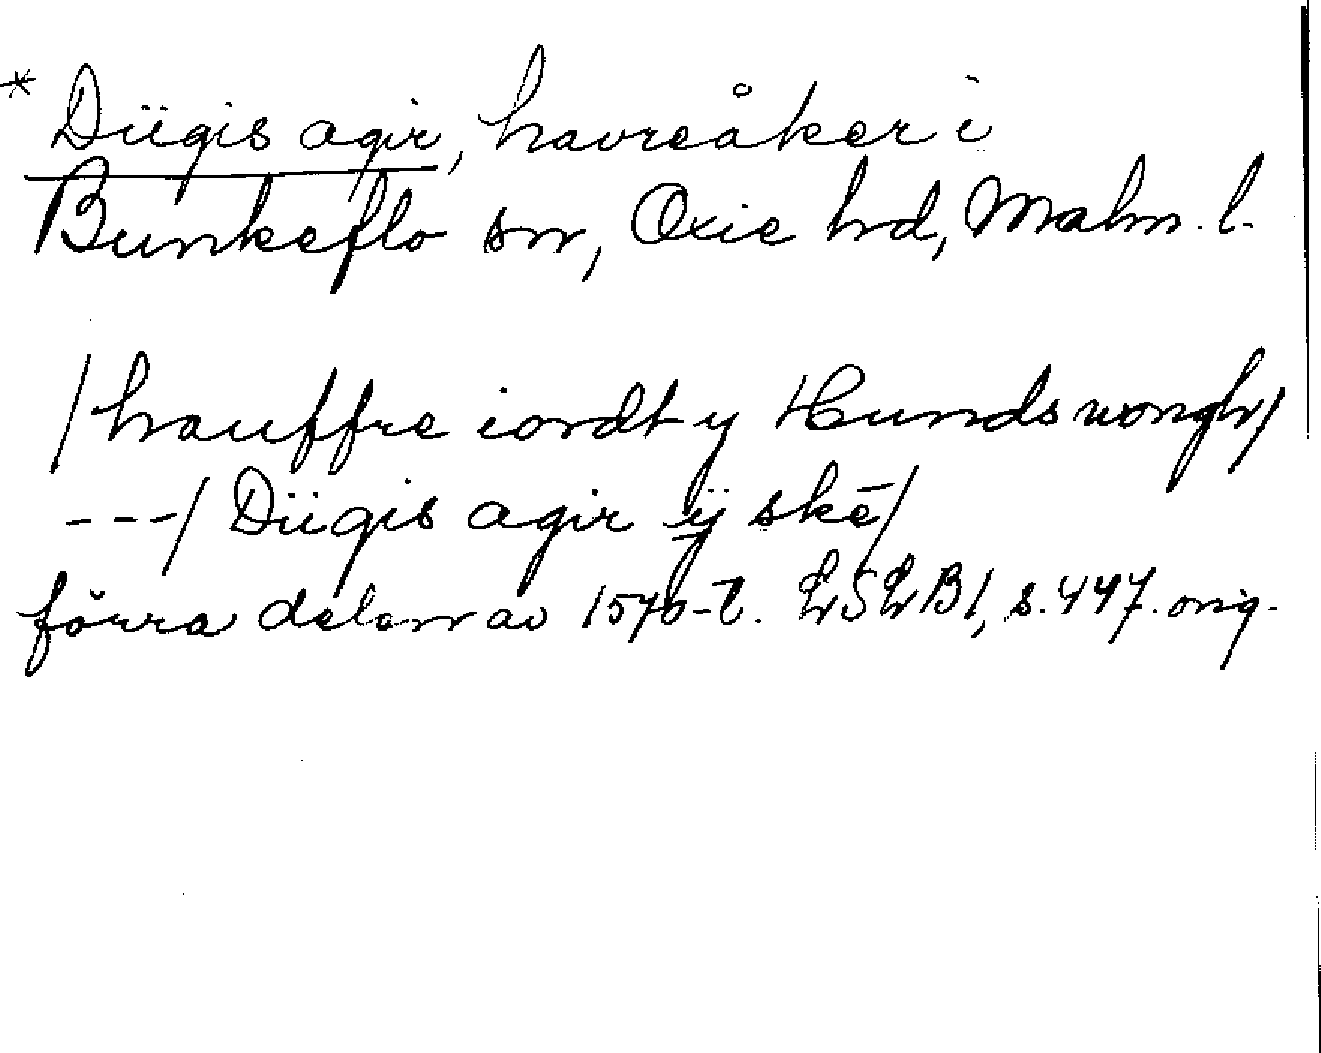 * Dügis agir, havreåker i
Bunkeflo sn, Oxie hd, Malm. l.
/hauffre iordt y Hunds wongh/
---/ Dügis agir ÿ skē/
förra delen av 1570-t. LSLB1, s. 447. orig.